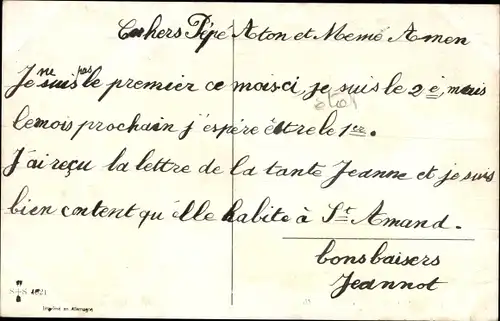 Chers Pépé Aton et Memé Amen
Je ne suis pas le premier ce moisci, je suis le 2è, mais
le mois prochain j'espère être le 1er.
J'ai reçu la lettre de la tante Jeanne et je suis
bien content qu'elle habite à St Amand.
bons baisers
Jeannot
S+S 4621
Imprimé en Allemagne